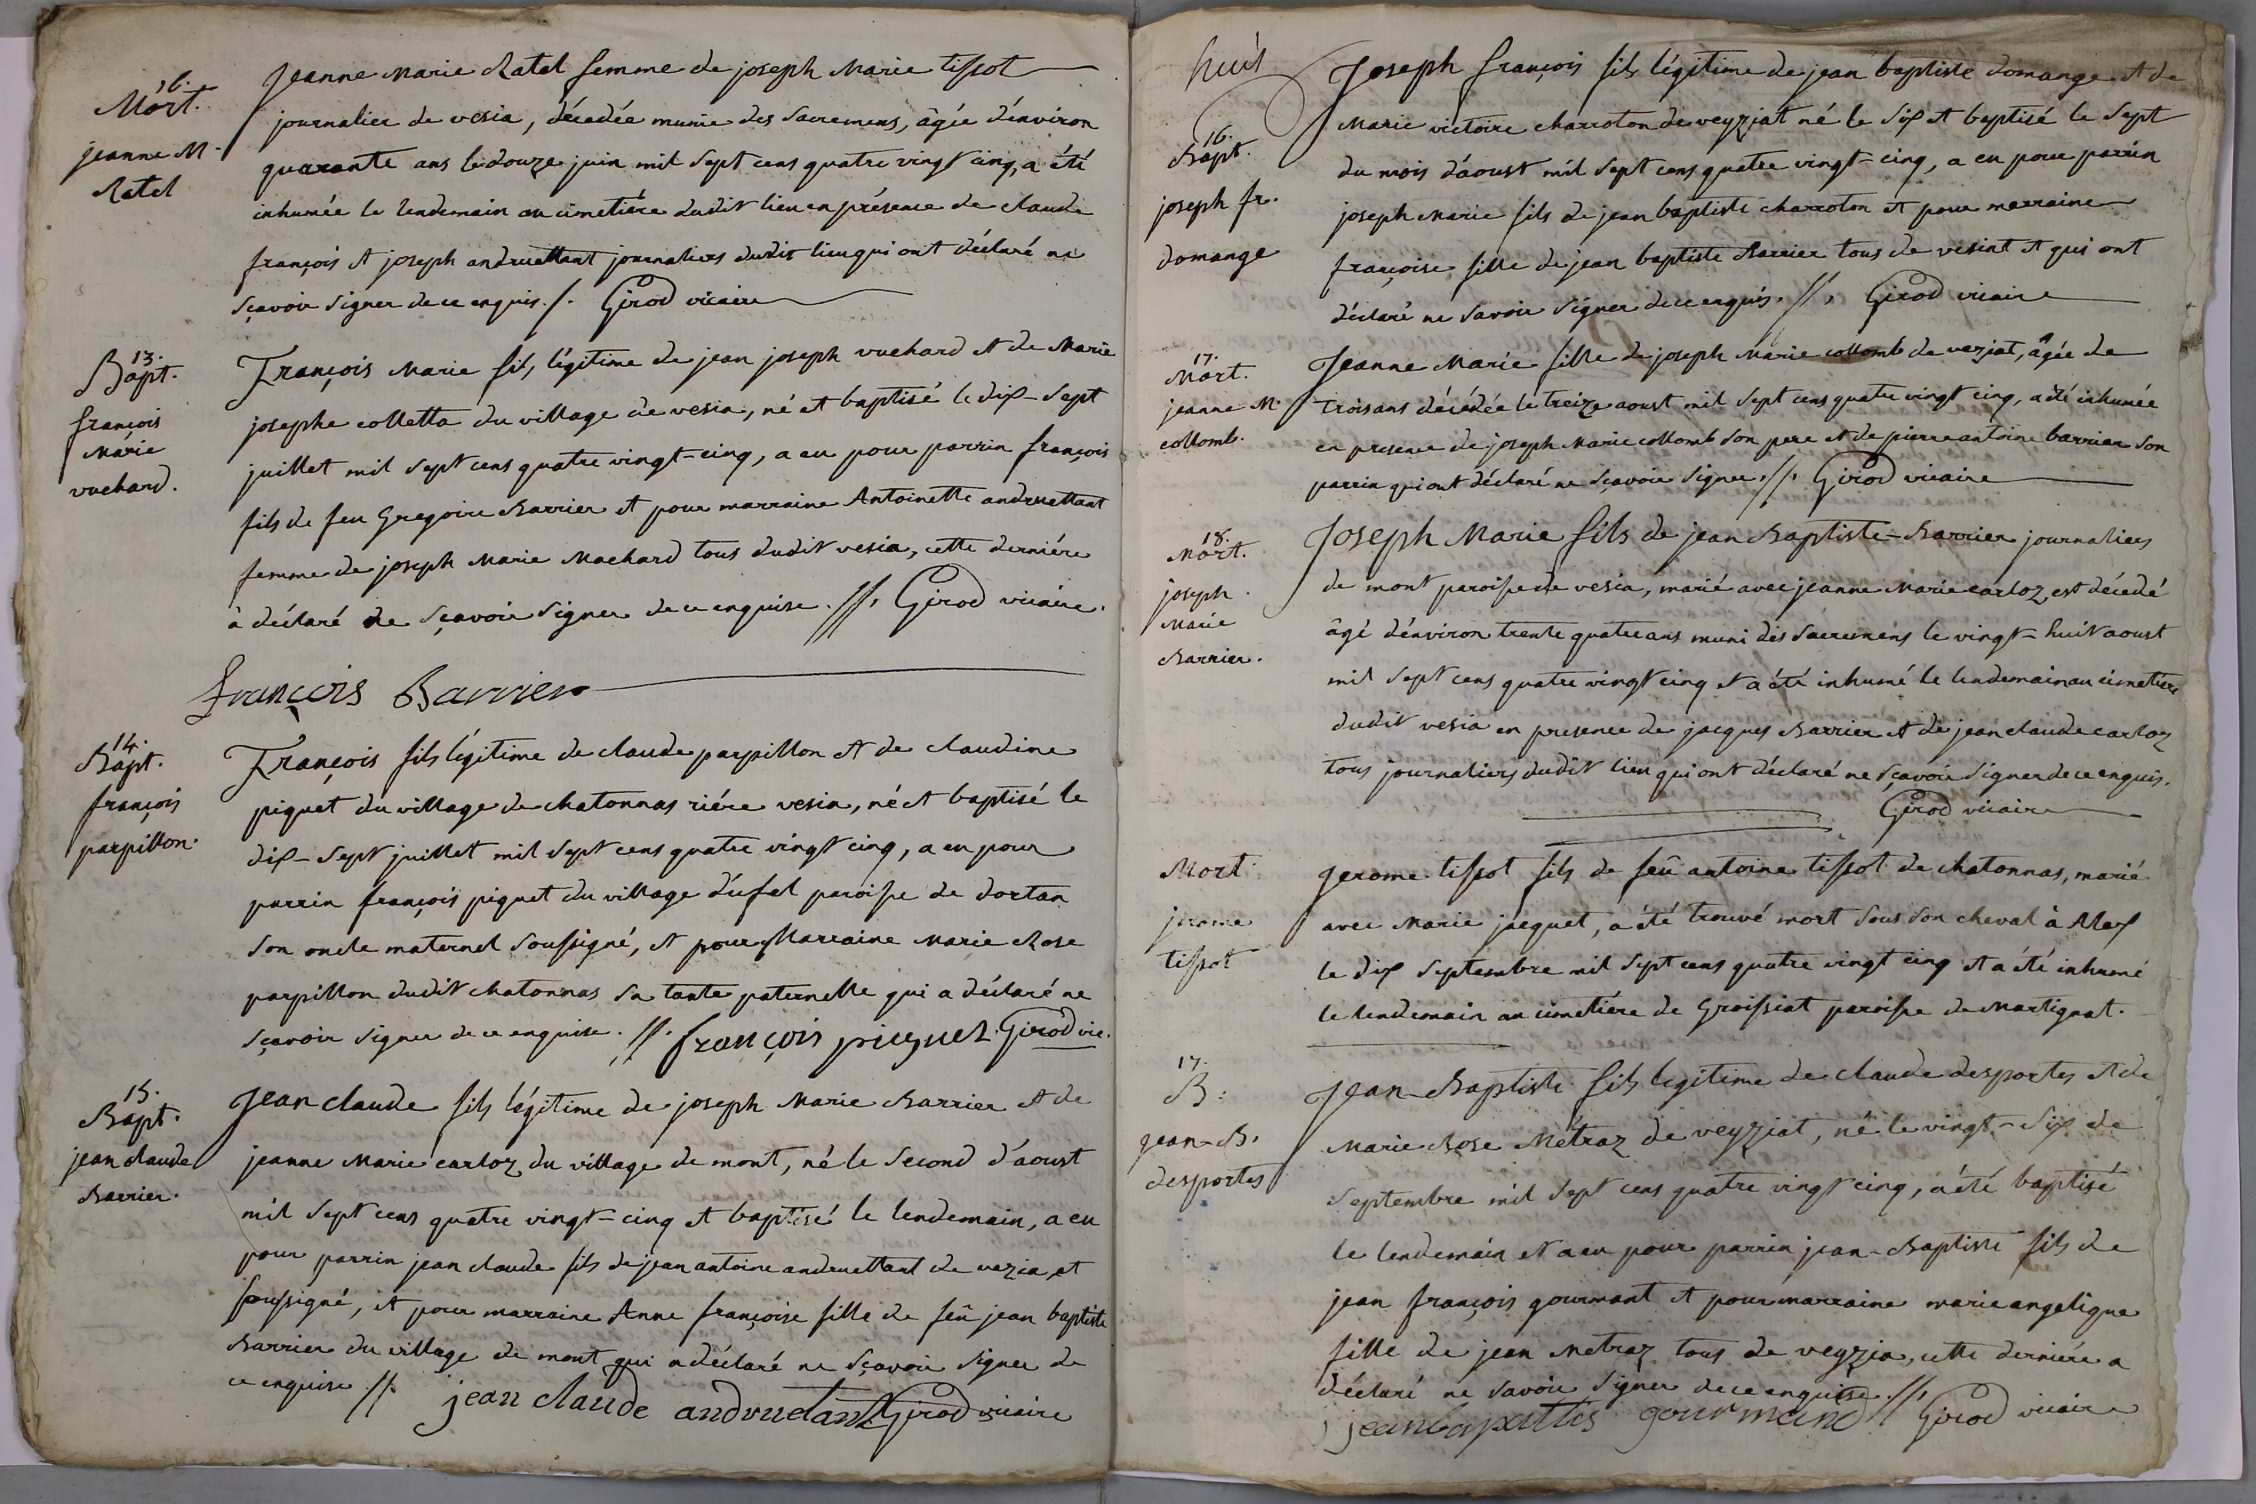 16.
Mort.
jeanne M.
Ratel
Jeanne Marie Ratel femme de joseph Marie tissot
journalier de vesia, décédée munie des sacremens, âgée d'environ
quarante ans le douze juin mil sept cens quatre vingt cinq, a été
inhumée le lendemain au cimetiére dudit lieu en présence de claude
françois et joseph andruettant journaliers dudit lieu qui ont déclaré ne
sçavoir signer de ce enquis. /. Girod vicaire
13.
Bapt.
françois
Marie
vuchard.
François Marie fils légitime de jean joseph vuchard et de Marie
josephe colletta du village de vesia, né et baptisé le dix-sept
juillet mil sept cens quatre vingt-cinq, a eu pour parrin françois
fils de feu Gregoire Barrier et pour marraine Antoinette andruettant
femme de joseph Marie Machard tous dudit vesia, cette derniére
à déclaré ne sçavoir signer de ce enquise. //. Girod vicaire.
françois Barrier
14.
Bapt.
françois
parpillon.
François fils légitime de claude parpillon et de claudine
piquet du village de chatonnas riére vesia, né et baptisé le
dix-sept juillet mil sept cens quatre vingt cinq, a eu pour
parrin françois piquet du village d'ufel paroisse de dortan
son oncle maternel soussigné, et pour Marraine Marie Rose
parpillon dudit chatonnas sa tante paternelle qui a déclaré ne
sçavoir signer de ce enquise. //. françois picquet. Girod vic.
15.
Bapt.
jean claude
Barrier.
Jean claude fils légitime de joseph Marie Barrier et de
jeanne Marie carloz du village de mont, né le second d'aoust
mil sept cens quatre vingt-cinq et baptisé le lendemain, a eu
pour parrin jean claude fils de jean antoine andruettant de vezia, et
soussigné, et pour marraine Anne françoise fille de feû jean baptiste
Barrier du village de mont qui a déclaré ne sçavoir signer de
ce enquise //. jean claude andruetant Girod vicaire
huit
16.
Bapt.
joseph fr.
domange
Joseph françois fils légitime de jean baptiste domange et de
Marie victoire charroton de veyziat né le six et baptisé le sept
du mois d'aoust mil sept cens quatre vingt-cinq, a eu pour parrin
joseph Marie fils de jean baptiste charroton et pour marraine
françoise fille de jean baptiste Barrier tous de vesiat et qui ont
déclaré ne savoir signer de ce enquis. //. Girod vicaire
17.
Mort.
jeanne M.
collomb.
Jeanne Marie fille de joseph Marie collomb de veziat, âgée de
trois ans décédée le treize aoust mil sept cens quatre vingt cinq, a été inhumée
en presence de joseph Marie collomb son pere et de pierre antoine barrier son
parrin qui ont déclaré ne sçavoir signer. //. Girod vicaire
18.
Mort.
joseph
Marie
Barrier.
Joseph Marie fils de jean Baptiste-Barrier journalier
de mont paroisse de vesia, marié avec jeanne Marie carloz, est décédé
âgé d'environ trente quatre ans muni des sacremens le vingt-huit aoust
mil sept cens quatre vingt cinq et a été inhumé le lendemain au cimetiere
dudit vesia en presence de jacques Barrier et de jean claude carloz
tous journaliers dudit lieu qui ont déclaré ne sçavoir signer de ce enquis.
Girod vicaire
Mort
jerome
tissot
Jerome tissot fils de feû antoine tissot de chatonnas, marié
avec Marie jacquet, a été trouvé mort sous son cheval à Alex
le dix septembre mil sept cens quatre vingt cinq et a été inhumé
le lendemain au cimetiére de Groissiat paroisse de Martignat.
17.
B:
jean-B.
desportes
Jean-Baptiste fils legitime de claude desportes et de
Marie Rose Métraz de veyziat, né le vingt-six de
septembre mil sept cens quatre vingt cinq, a été baptisé
le lendemain et a eu pour parrin jean-Baptiste fils de
jean françois gourmant et pour marraine marie angelique
fille de jean Metraz tous de veyzia, cette derniére a
déclaré ne savoir signer de ce enquise. //.
jeanbapattis gourmand Girod vicaire